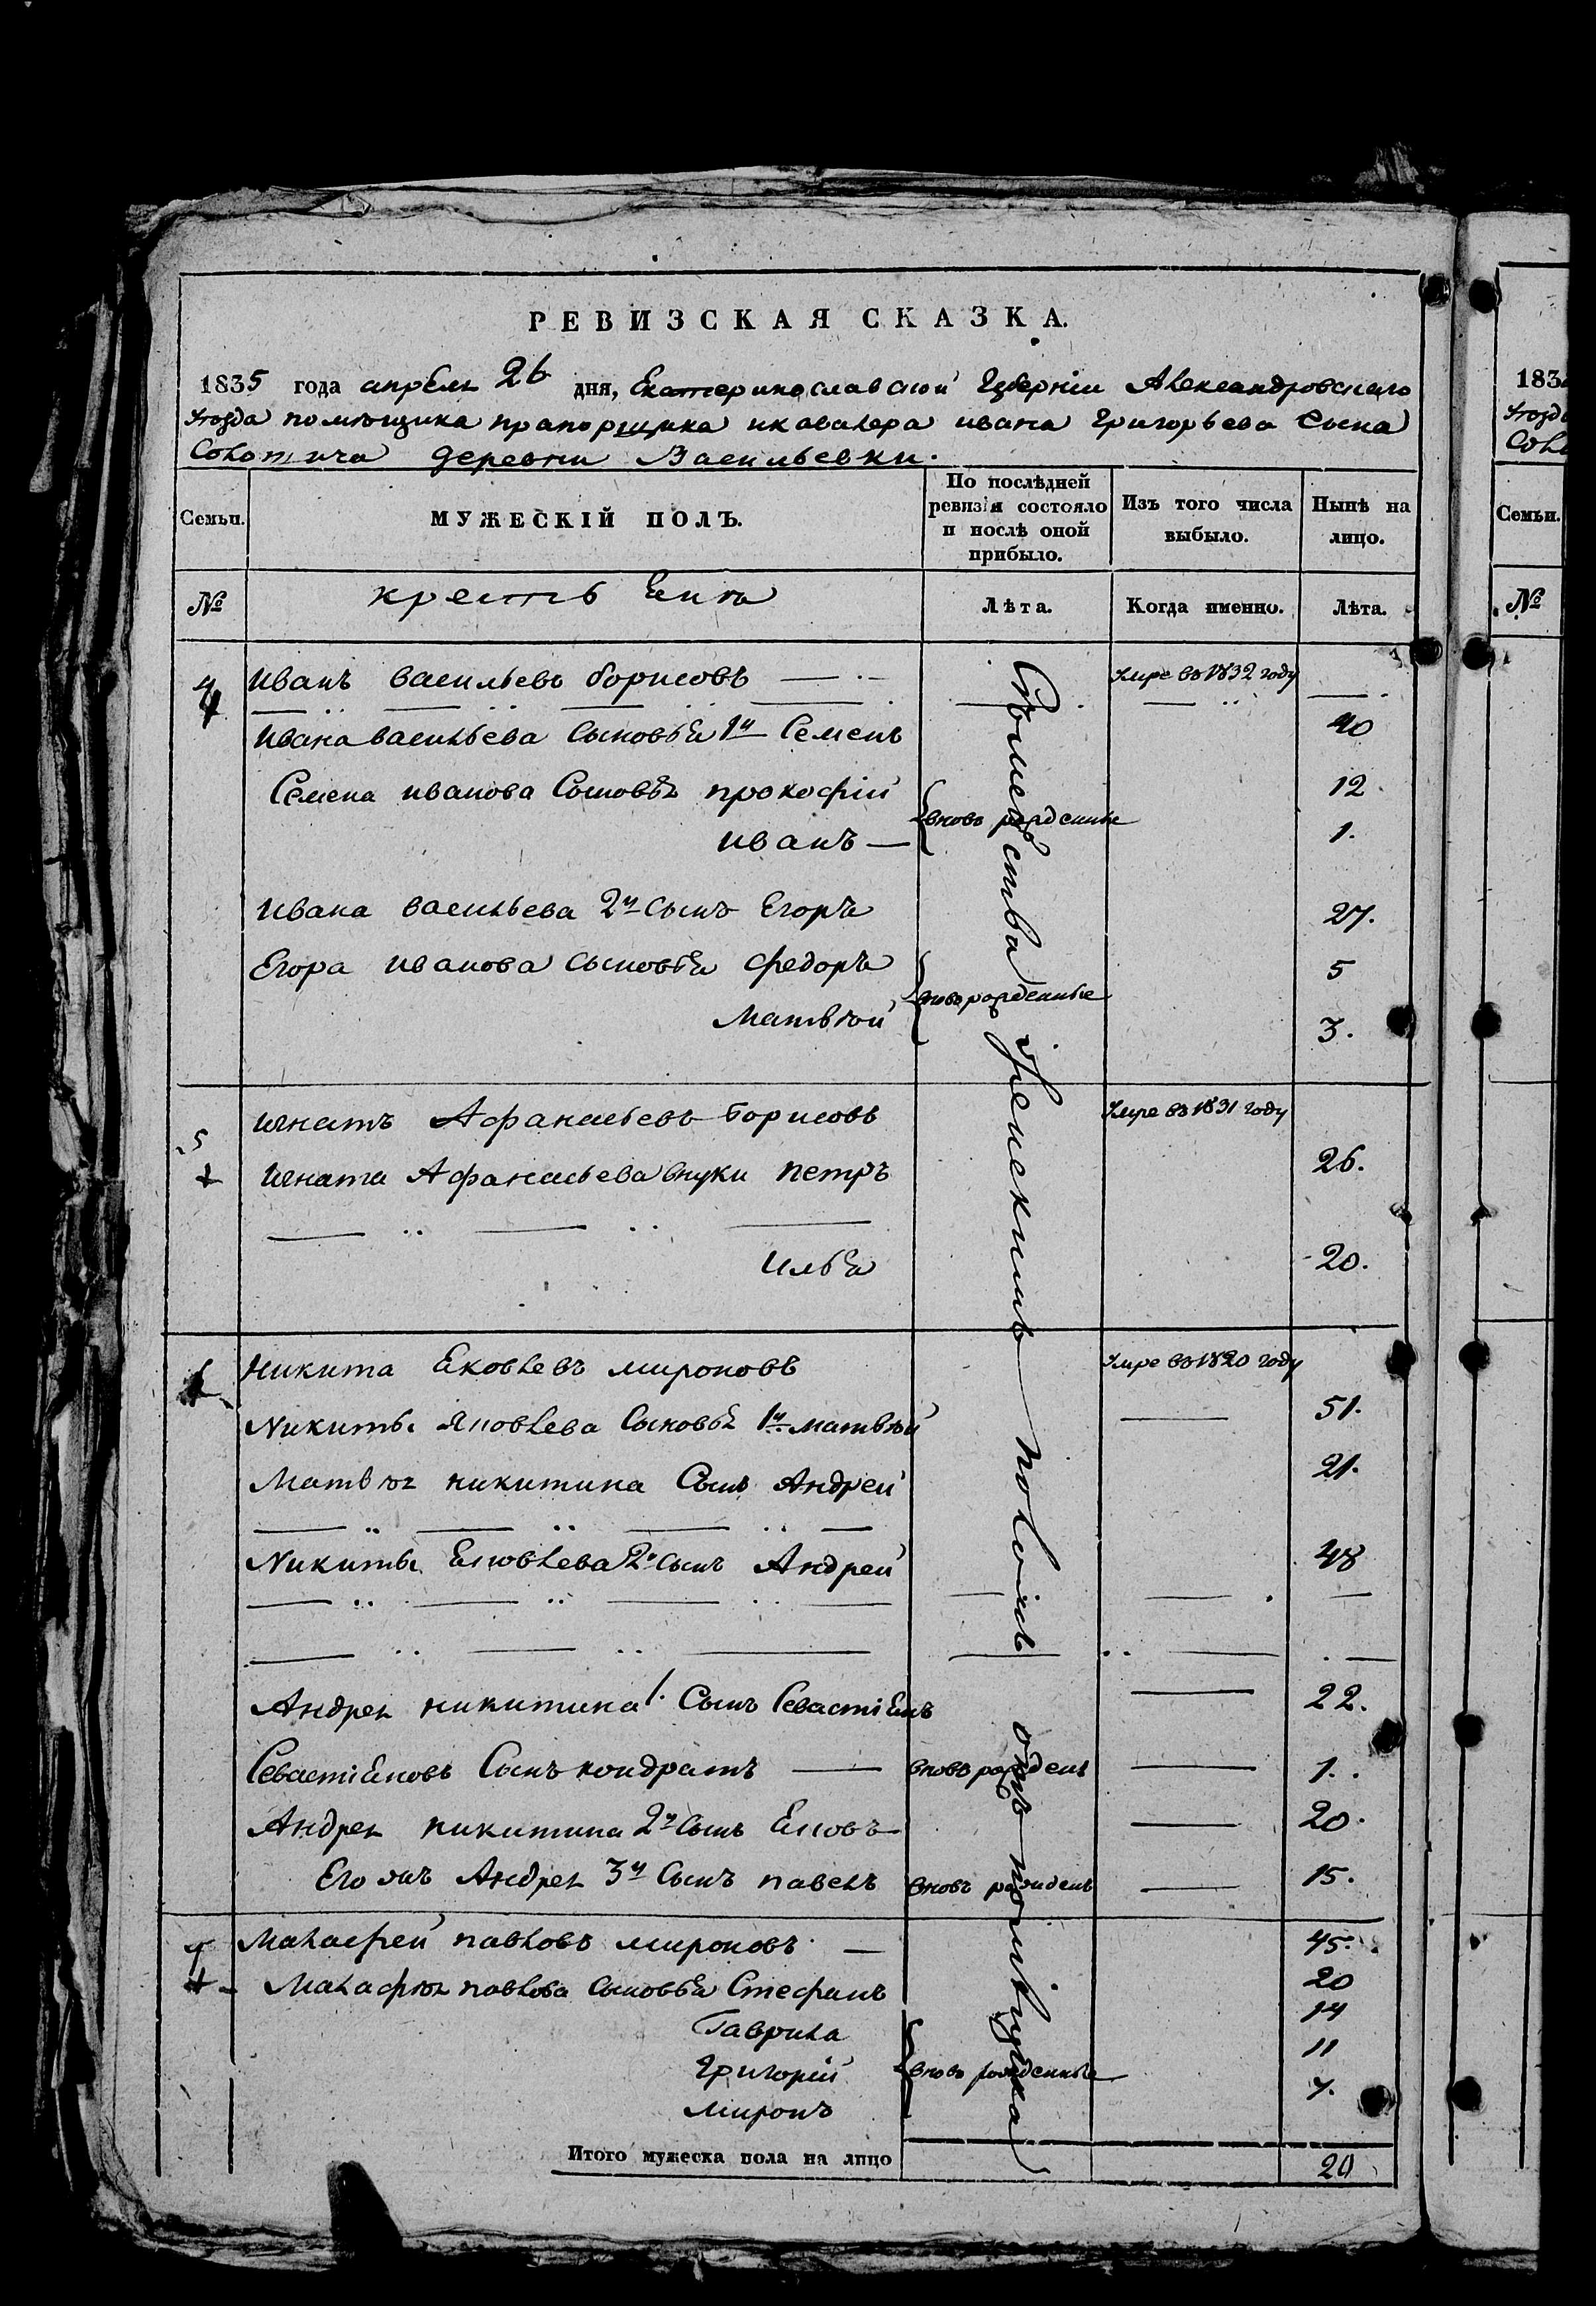 РЕВИЗСКАЯ СКАЗКА.
1835 года апреля 26 дня, Екатеринославской Губернии Александровскаго
уѣзда помѣщика прапорщика и кавалера ивана Григорьева Сына
деревни Васильевки.
Семьи.
МУЖЕСКІЙ ПОЛЪ.
По послѣдней ревизіи состояло и послѣ оной прибыло.
Изъ того числа выбыло.
Нынѣ на лицо.
№
Лѣта.
Когда именно.
Лѣта.
4 Иванъ васильевъ борисовъ умре въ 1832 году
Ивана васильева Сыновья 1й Семенъ 40
Семена иванова Сыновья прокофій 12
вновь рожденные
иванъ 1.
Ивана васильева 2й Сынъ Егоръ 27.
Егора иванова Сыновья федоръ 5
вновь рожденные
Матвѣй 3.
5 игнатъ Афанасьевъ борисовъ умре въ 1831 году
игната Афанасьева внуки петръ 26.
илья 20.
Никита яковлевъ мироновъ умре въ 1820 году
Никиты яковлева Сыновья 1й матвѣй 51.
Матвѣя никитина Сынъ Андрей 21.
Никиты яковлева 2й Сынъ Андрей 48
Андрея никитина 1. Сынъ Севастіянъ 22.
Севастіяновъ Сынъ кондратъ вновь рожденъ 1.
Андрея никитина 2й Сынъ яковъ 20.
Его жъ Андрея 3й Сынъ павелъ вновь рожденъ 15.
Малафей павловъ мироновъ 45.
Малафѣя павлова Сыновья Стефанъ 20
Гаврила 14
Григорій 11
вновь рожденные
миронъ 7.
женскимъ поломъ
Итого мужеска пола на лицо 20
1835
Семьи.
№